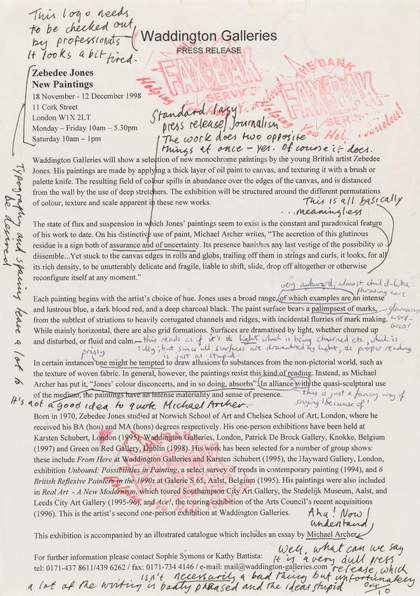 This logo needs
to be checked out
by professionals
It looks a bit tired.
Waddington Galleries
PRESS RELEASE
Zebedee Jones
New Paintings
18 November - 12 December 1998
11 Cork Street
London W1X 2LT
Monday – Friday 10am – 5.30pm
Saturday 10am – 1pm
FAYBAK
THE BANK
Standard lazy
press release journalism
The work does two opposite
things at once – yes. Of course it does.
Waddington Galleries will show a selection of new monochrome paintings by the young British artist Zebedee
Jones. His paintings are made by applying a thick layer of oil paint to canvas, and texturing it with a brush or
palette knife. The resulting field of colour spills in abundance over the edges of the canvas, and is distanced
from the wall by the use of deep stretchers. The exhibition will be structured around the different permutations
of colour, texture and scale apparent in these new works.
This is all basically
...meaningless
Typography and spacing leave a lot to
be desired
The state of flux and suspension in which Jones' paintings seem to exist is the constant and paradoxical feature
of his work to date. On his distinctive use of paint, Michael Archer writes, "The accretion of this glutinous
residue is a sign both of assurance and of uncertainty. Its presence banishes any last vestige of the possibility to
dissemble...Yet stuck to the canvas edges in rolls and globs, trailing off them in strings and curls, it looks, for all
its rich density, to be unutterably delicate and fragile, liable to shift, slide, drop off altogether or otherwise
reconfigure itself at any moment."
Each painting begins with the artist's choice of hue. Jones uses a broad range, of which examples are an intense
and lustrous blue, a dark blood red, and a deep charcoal black. The paint surface bears a palimpsest of marks,
from the subtlest of striations to heavily corrugated channels and ridges, with incidental flurries of mark making.
While mainly horizontal, there are also grid formations. Surfaces are dramatised by light, whether churned up
and disturbed, or fluid and calm
In certain instances one might be tempted to draw allusions to substances from the non-pictorial world, such as
the texture of woven fabric. In general, however, the paintings resist this kind of reading. Instead, as Michael
Archer has put it, "Jones' colour discomforts, and in so doing, absorbs". In alliance with the quasi-sculptural use
of the medium, the paintings have an intense materiality and sense of presence.
this is just a fancy way of
saying 'because of'
It's not a good idea to quote Michael Archer.
Born in 1970, Zebedee Jones studied at Norwich School of Art and Chelsea School of Art, London, where he
received his BA (hons) and MA (hons) degrees respectively. His one-person exhibitions have been held at
Karsten Schubert, London Waddington Galleries, London, Patrick De Brock Gallery, Knokke, Belgium
(1997) and Green on Red Gallery, Dublin (1998). His work has been selected for a number of group shows:
these include From Here at Waddington Galleries and Karsten Schubert (1995), the Hayward Gallery, London,
exhibition Unbound: Possibilities in Painting, a world survey of trends in contemporary painting (1994), and 6
British Reflexive Painters in the 1990s at Galerie S 65, Aalst, Belgium (1995). His paintings were also included
in Real Art - A New Modernism, which toured Southampton City Art Gallery, the Stedelijk Museum, Aalst, and
Leeds City Art Gallery (1995-96), and Ace!, the touring exhibition of the Arts Council's recent acquisitions
(1996). This is the artist's second one-person exhibition at Waddington Galleries.
Aha! Now I
understand
This exhibition is accompanied by an illustrated catalogue which includes an essay by Michael Archer.
Well, what can we say
For further information please contact Sophie Symons or Kathy Battista:
It is a very dull press
tel: 0171-437 8611/439 6262 / fax: 0171-734 4146 / e-mail: mail@waddington-galleries.com
release, which
isn't necessarily a bad thing but unfortunately
a lot of the writing is badly phrased and the ideas stupid